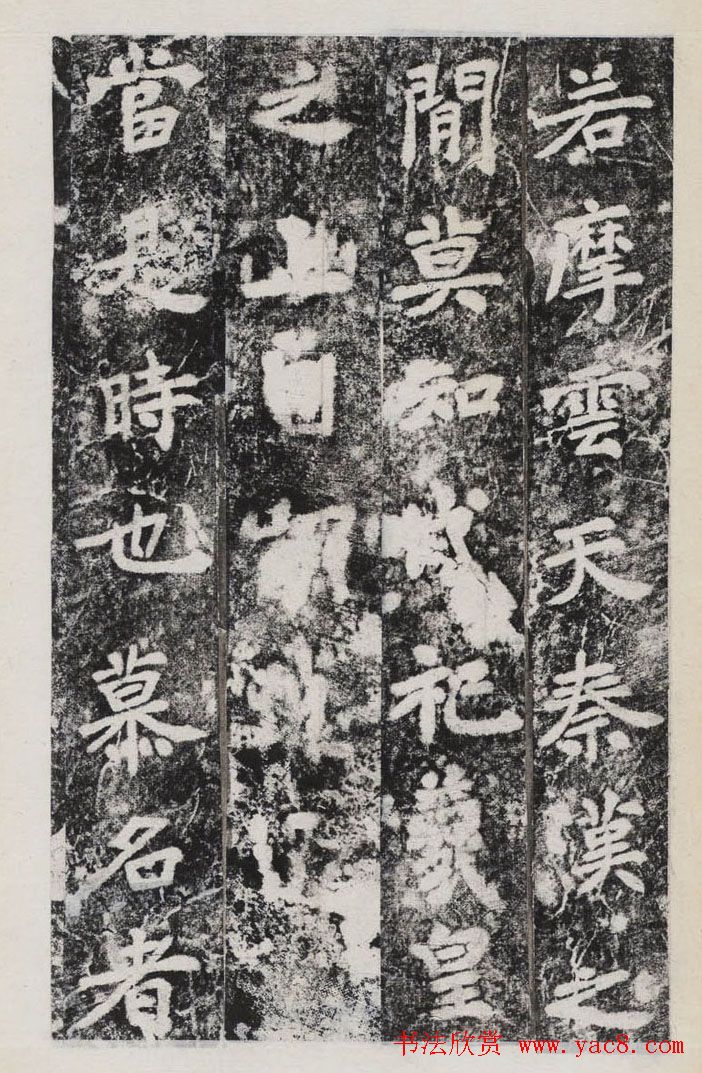 若摩雲天秦漢之
閒莫知祀羲皇
之自
當是時也慕名者
书法欣赏 www.yac8.com